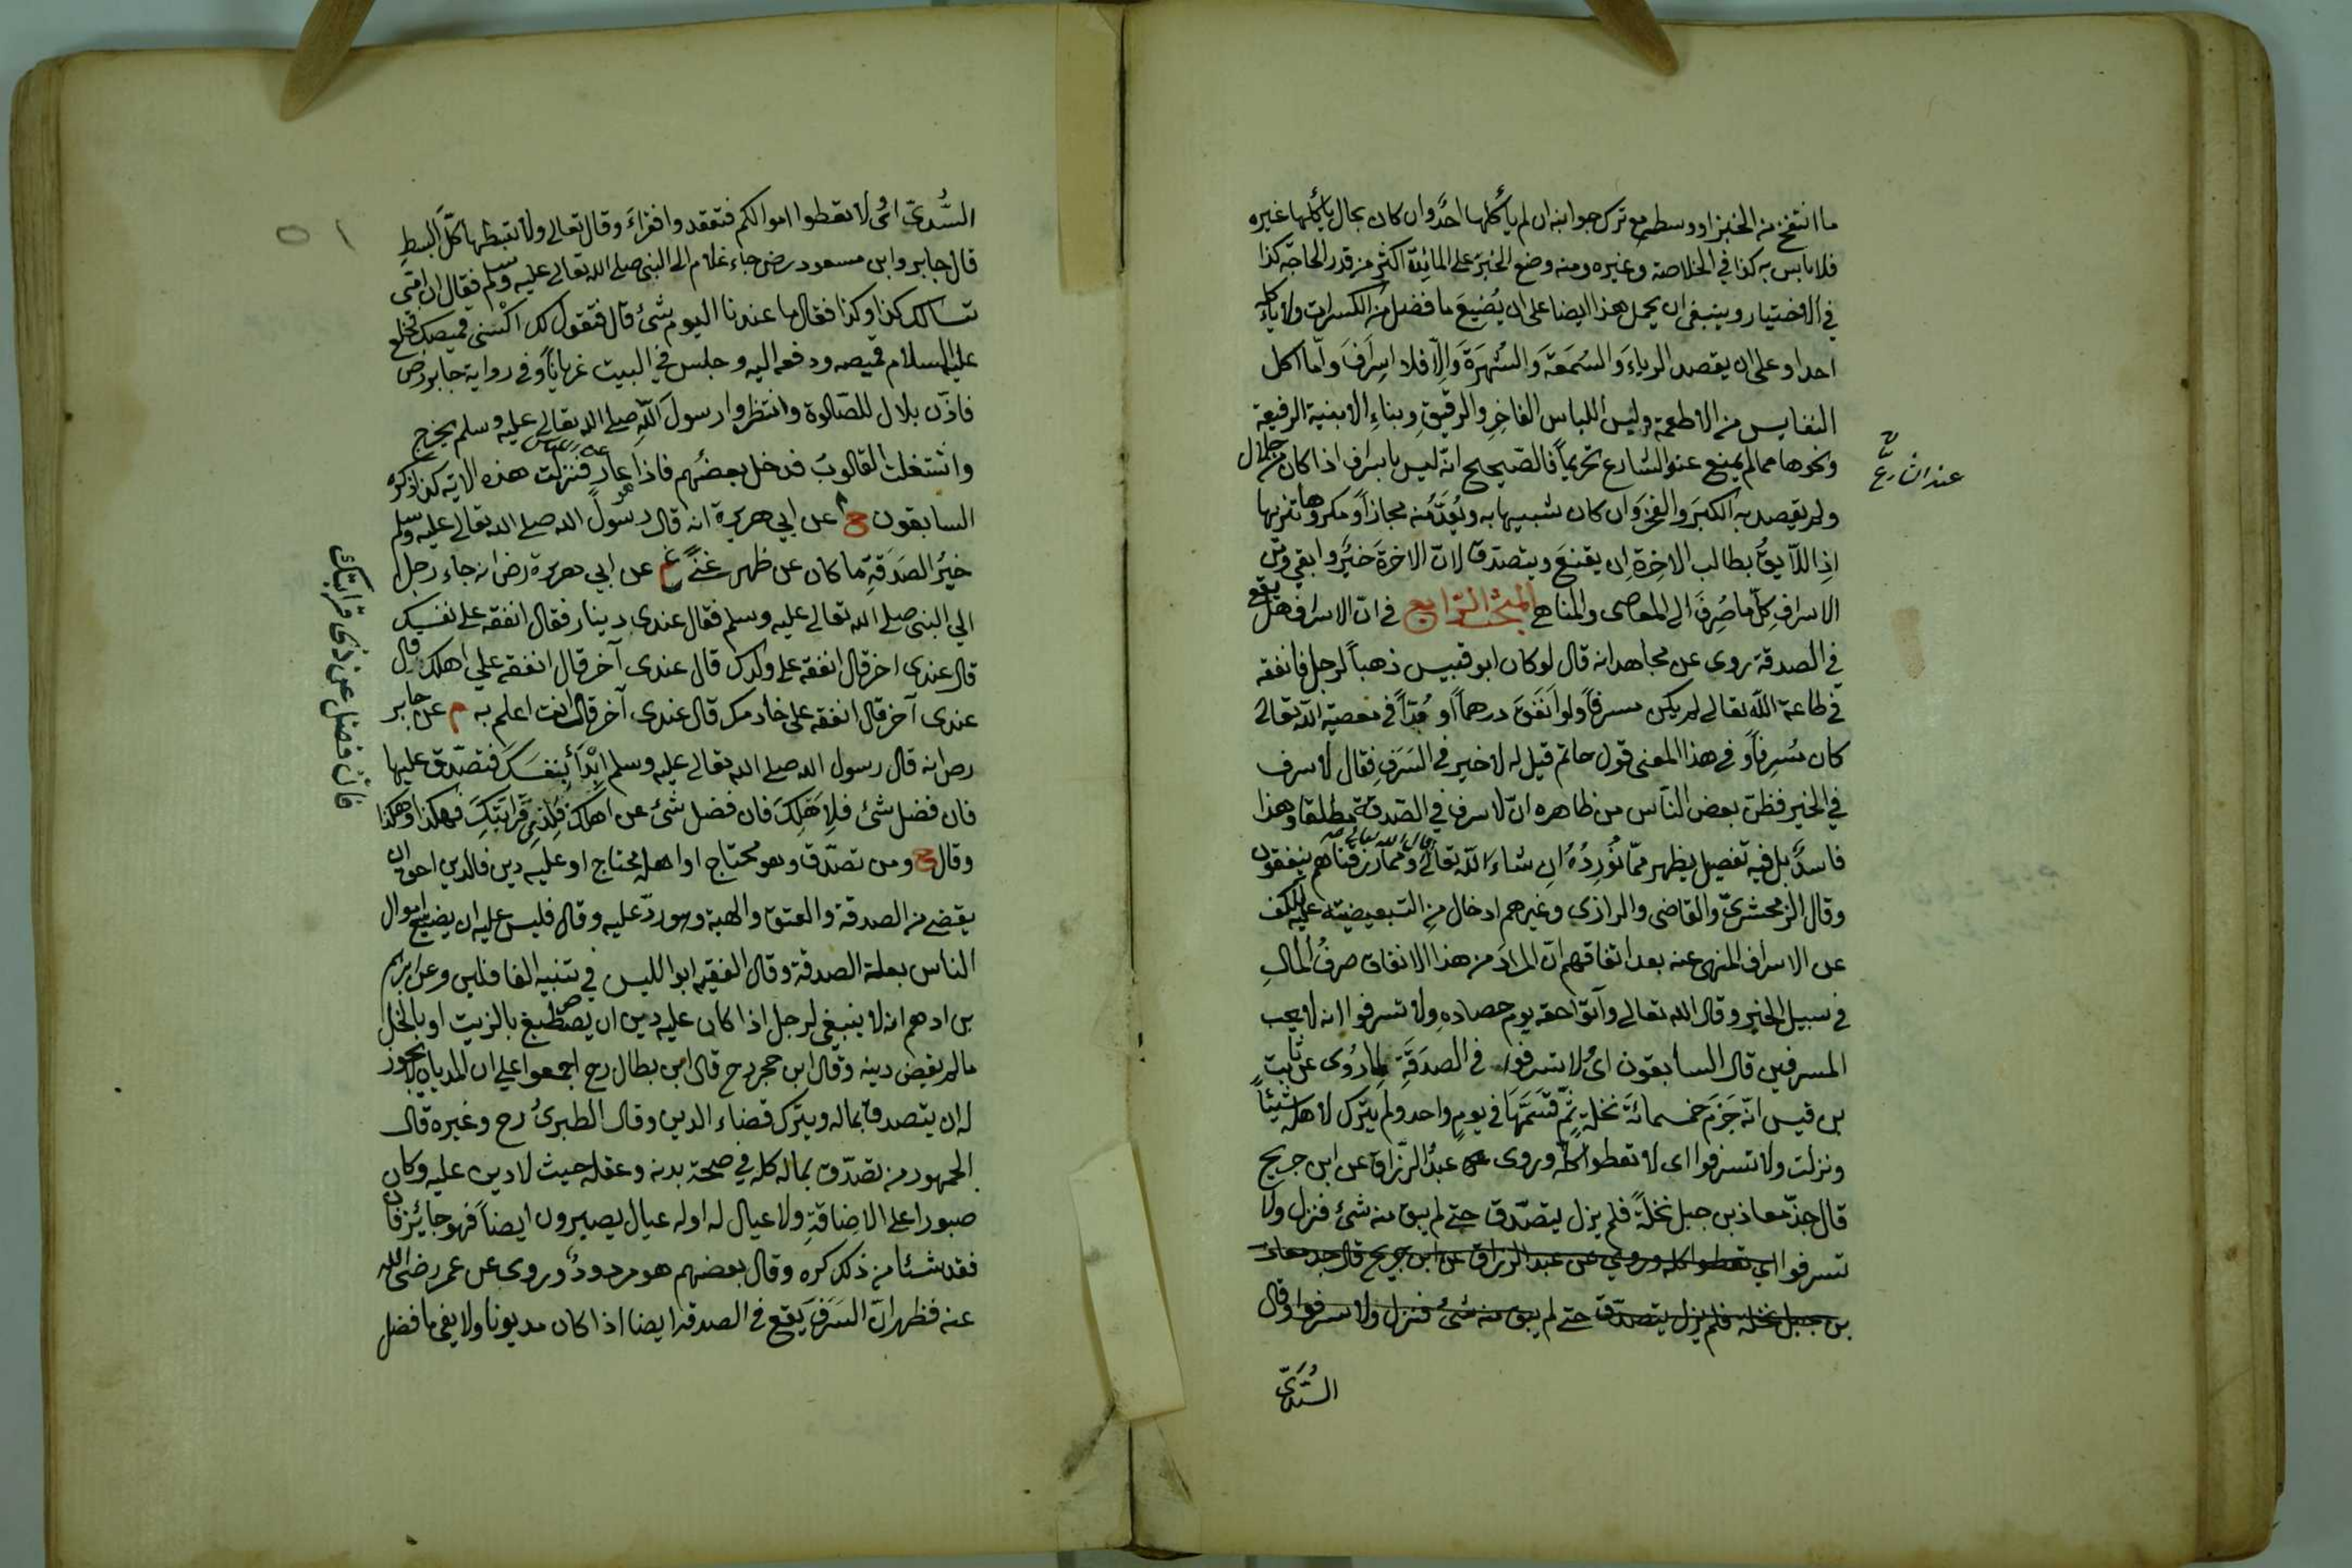 ما انتفخ من الخبز او وسطه مع ترك جوانبه ان لم يأكلها احدٌ وان كان بحال يأكلها غيره
فلا باس به كذا في الخلاصة وغيره ومنه وضع الخبز على المائدة اكثر من قدر الحاجة كذا
في الاختيار وينبغي ان يحمل هذا ايضا على ان يُضيعَ ما فضل من الكسرات ولا يأكله
احد او على ان يقصد الرياءَ والسُمعَة والشُهرَةَ وَالّا فلا اسِرافَ وامّا اكل
النفايس من الاطعمة ولبس اللباس الفاخِرِ والرقيقِ وبناءِ الابنية الرفيعة
ونحوها مما لم يمنع عنه الشارع تحريماً فالصّحيح انّه ليس باسراف اذا كان من حلال
عند الشارع
ولم يقصد به الكبَر والفخرَ وان كان شبيها به ويُعَدّ منه مجازاً ومكروها تنزيها
اذِ اللّايقُ بطالب الاخِرةِ ان يقنعَ ويتصدّق لانّ الاخرةَ خيرٌ وابقى ومن
الاسرافِ كلّ ما صُرِفَ الى المعاصى والمناهى المبحث الرّابع في انّ الاسراف هل يقع
في الصدقة روى عن مجاهد انه قال لو كان ابو قبيس ذهباً لرجل فانفقه
في طاعة اللّه تعالى لم يكن مسرفاً ولو اَنفَقَ درهماً او مُدّاً في معصية اللّه تعالى
كان مُسرِفاً وفي هذا المعنى قول حاتم قيل له لا خير في السَرَفِ فقال لا سرف
في الخير فظنّ بعض النّاس من ظاهره انّ لا سرف في الصّدقة مطلقا وهذا
فاسدٌ بل فيه تفصيل يظهر ممّا نُورِدُهُ اِن شاءَ اللّه تعالى قال الله تعالى وممّا رزقناهم ينفقون
وقال الزمخشريّ والقاضى والرازي وغيرهم ادخال مِن التبعيضيّة عليه للكف
عن الاسراف المنهى عنه بعد اتفاقهم انّ المرادَ من هذا الانفاق صرفُ المالِ
في سبيل الخير وقال الله تعالى وآتوا حقه يوم حصادهِ ولا تسرفوا انه لا يحب
المسرفين قال السابقون اىْ لا تسرفوا في الصدَقَةِ لما رُوى عن ثابتِ
بن قيس انّه جَزَم خمسمائةَ نخلةٍ ثمّ قسَمَهَا في يومٍ واحد ولم يترك لاهله شيئاً
ونزلت ولا تسرفوا اى لا تعطوا كلّه وروى عن عبدُ الرّزاق عن ابن جريج
قال جذّ معاذ بن جبل نخلةً فلم يزل يتصدّق حتى لم يبق منه شئ فنزل ولا
تسرفوا اي تعطوا كله وروي عن عبد الرزاق عن ابن جريج قال جد معاذ
بن جبل نخلة فلم يزل يتصدّق حتى لم يبق منه شئ فنزل ولا تسرفوا وقال
السُّدّىّ
السُّدىّ اىْ لا تعطوا اموالكم فتقعد وافقراءَ وقال تعالى ولا تبسطها كلّ البسطِ
قال جابر وابن مسعود رض جاء غلام الى النبى صلى الله تعالى عليه وسلم فقال ان امّى
تسالك كذا وكذا فقال ما عندنا اليوم شئ قال فتقول لك اكْسُنى قميصك فخلع
عليه السلام قميصه ودفعه اليه وجلس في البيت عرياناً وفي رواية جابر رض
فاذّن بلال للصّلوة وانتظروا رسولَ اللّهِ صلى الله تعالى عليه وسلم يخرج
واشتغلت القلوبُ فدخل بعضُهم فاذا هو عار فنزلت هذه الاية كذا ذكره
السابقون خ عن ابي هريرة انه قال رسولَ الله صلى الله تعالى عليه وسلم
خيرُ الصَدَقَةِ ما كان عن ظهرِ غنًى غ عن ابي هريرة رض انه جاء رجل
الى النبى صلى الله تعالى عليه وسلم فقال عندى دينار فقال انفقه على نفسك
قال عندى اخر قال انفقه على ولدك قال عندى آخر قال انفقه علي اهلك قال
عندى آخر قال انفقه على خادمك قال عندى آخر قال انت اعلم به م عن جابر
رض انه قال رسول الله صلى الله تعالى عليه وسلم ابْدَأ بنفسَكَ فتصدّق عليها
فان فضل شئ فلاِهَلِكَ فان فضل شئ عن اهلكَ فَلِذِى قَرابَتِكَ فهكذا وهكذا
فان فضل عن ذى قرابتك
وقال خ ومن تصدّق وهو محتاج او اهله محتاج او عليه دين فالدين احق ان
يقضى من الصدقة والعتق والهبة وهو ردّ عليه وقال فليس عليه ان يضيع اموال
الناس بعلة الصدقة وقال الفقيه ابو الليس في تنبيه الغافلين وعن ابراهيم
بن ادهم انه لا ينبغي لرجل اذا كان عليه دين ان يصطبغ بالزيت او بالخل
ما لم يقض دينه وقال ابن حجر رح قال ابن بطال رح اجمعوا على ان المديان لا يجوز
له ان يتصدق بماله ويترك قضاء الدين وقال الطبرىُّ رح وغيره قال
الجمهور من تصدّق بماله كله في صحة بدنه وعقله حيث لا دين عليه وكان
صبورا على الاضاقةِ ولا عيال له او له عيال يصبرون ايضاً فهو جائز فان
فقد شئا من ذلك كره وقال بعضهم هو مردودٌ وروى عن عمر رضى الله
عنه فظهر انّ السَرَفَ يَقع في الصدقه ايضا اذا كان مديونا ولا يفى ما فضل